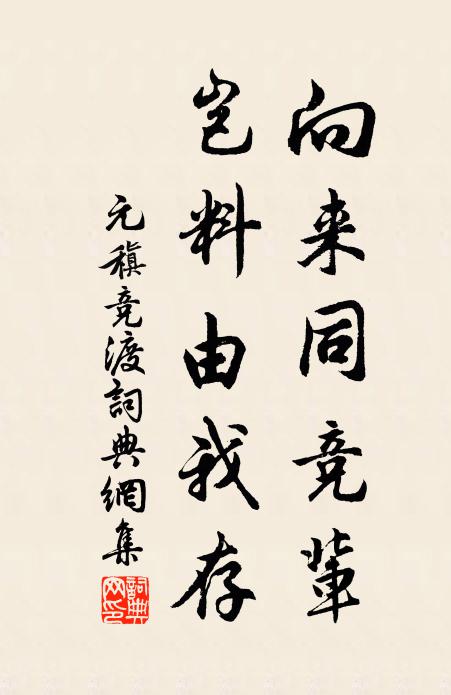 向来同竞辈
岂料由我存
元稹竞渡詞典網集
詞典网印